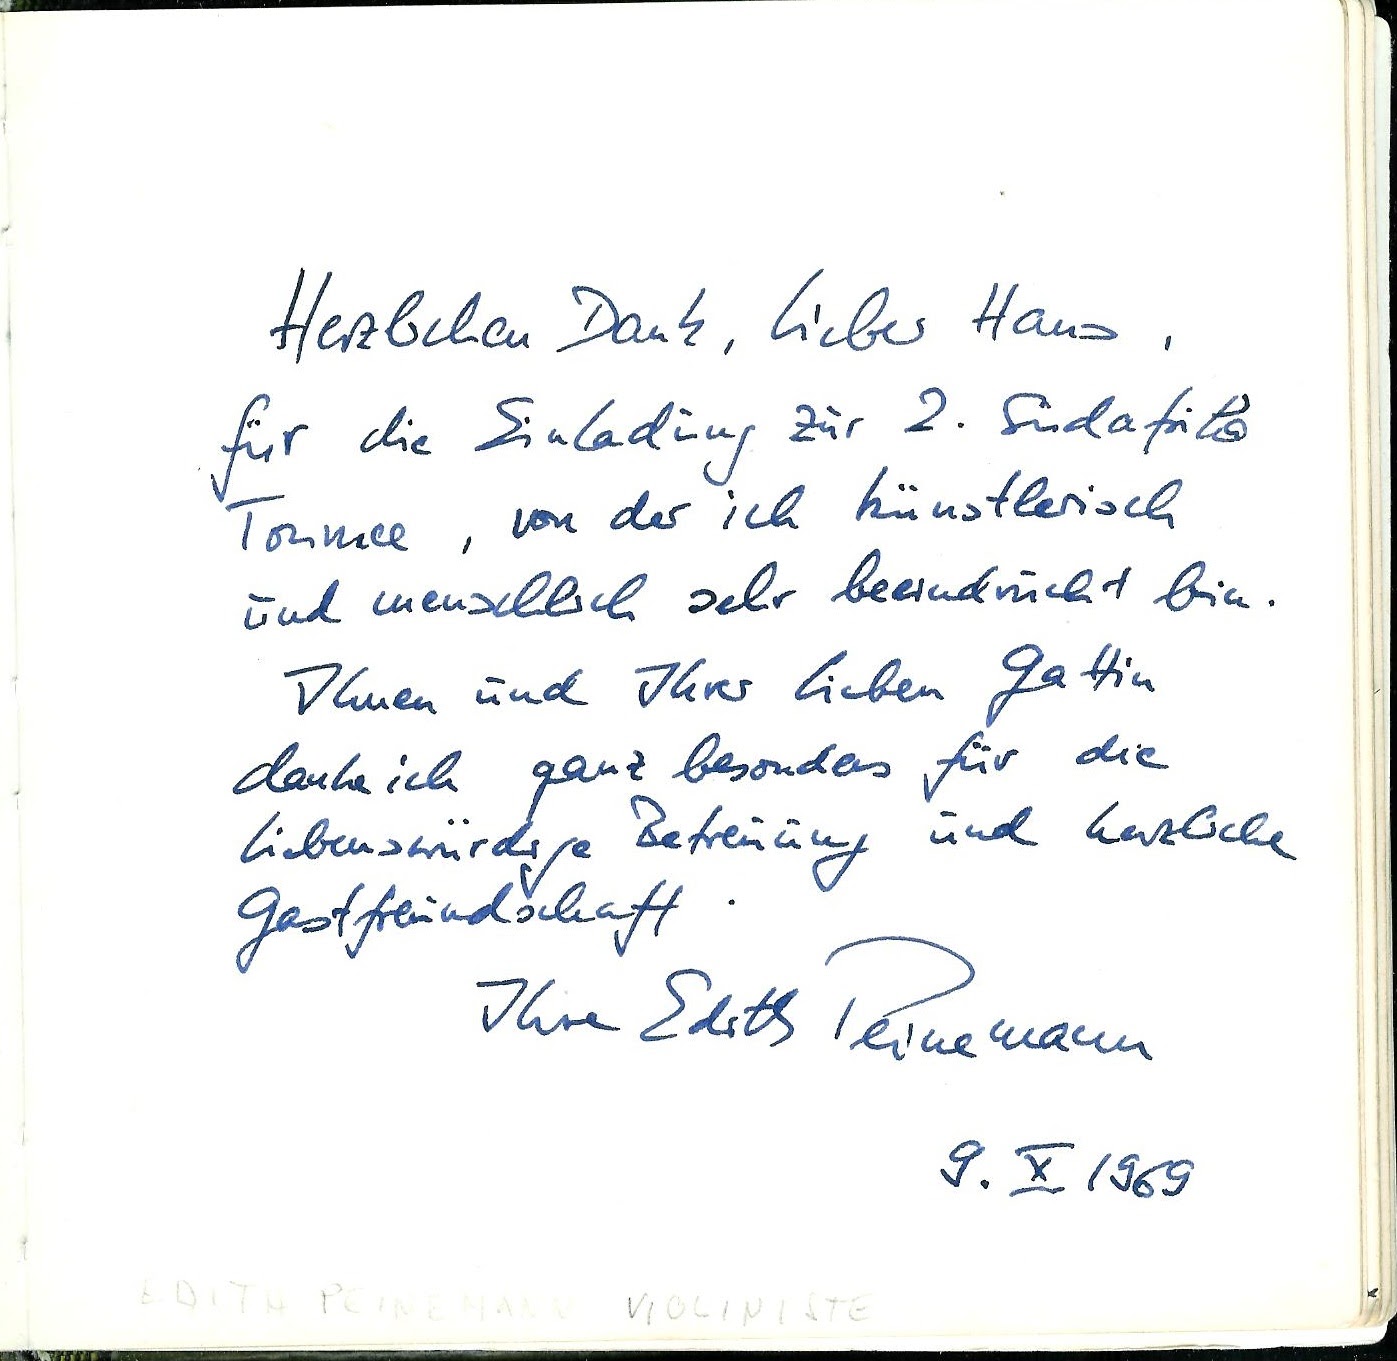 Herzlichen Dank, lieber Hans,
für die Einladung zur 2. Südafrika
Tournee, von der ich künstlerisch
und menschlich sehr beeindruckt bin.
Ihnen und Ihrer lieben Gattin
danke ich ganz besonders für die
liebenswürdige Betreuung und herzliche
Gastfreundschaft.
Ihre Edith Peinemann
9. X 1969
EDITH PEINEMANN VIOLINISTE